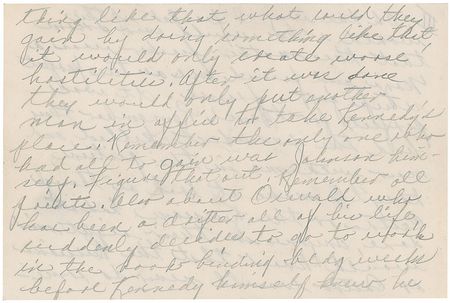 thing like that what could they
gain by doing something like that
it would only create worse
hostilities. After it was done
they would only put another
man in office to take Kennedy's
place. Remember the only one who
had all to gain was Johnson him-
self. Figure that out. Remember all
points. Also about Oswald who
has been a drifter all of his life
suddenly decides to go to work
in the book binding bldg, weeks
before Kennedy himself knew he